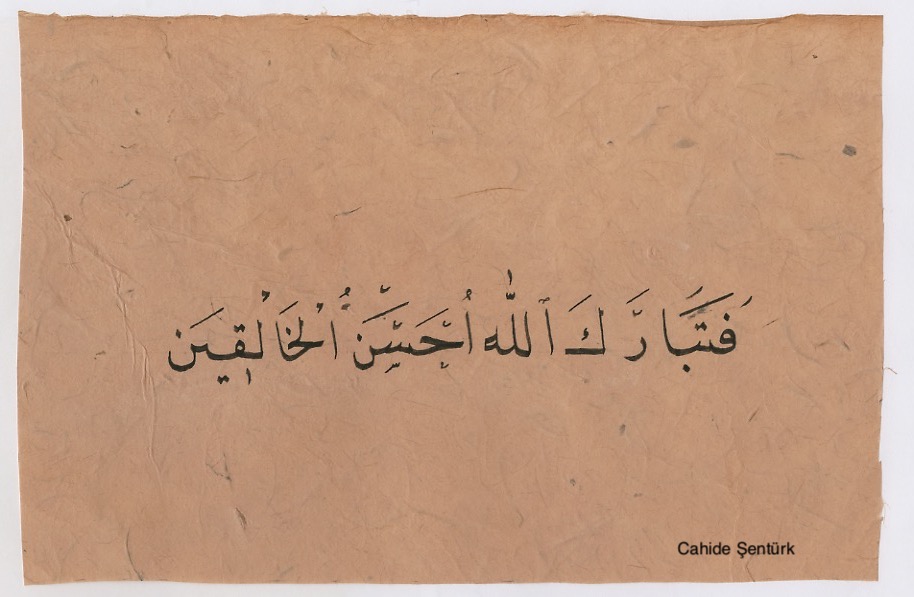 فَتَبَارَكَ ٱللّٰهُ اُحَسَنُ الْخَالِقِينَ
Cahide Şentürk